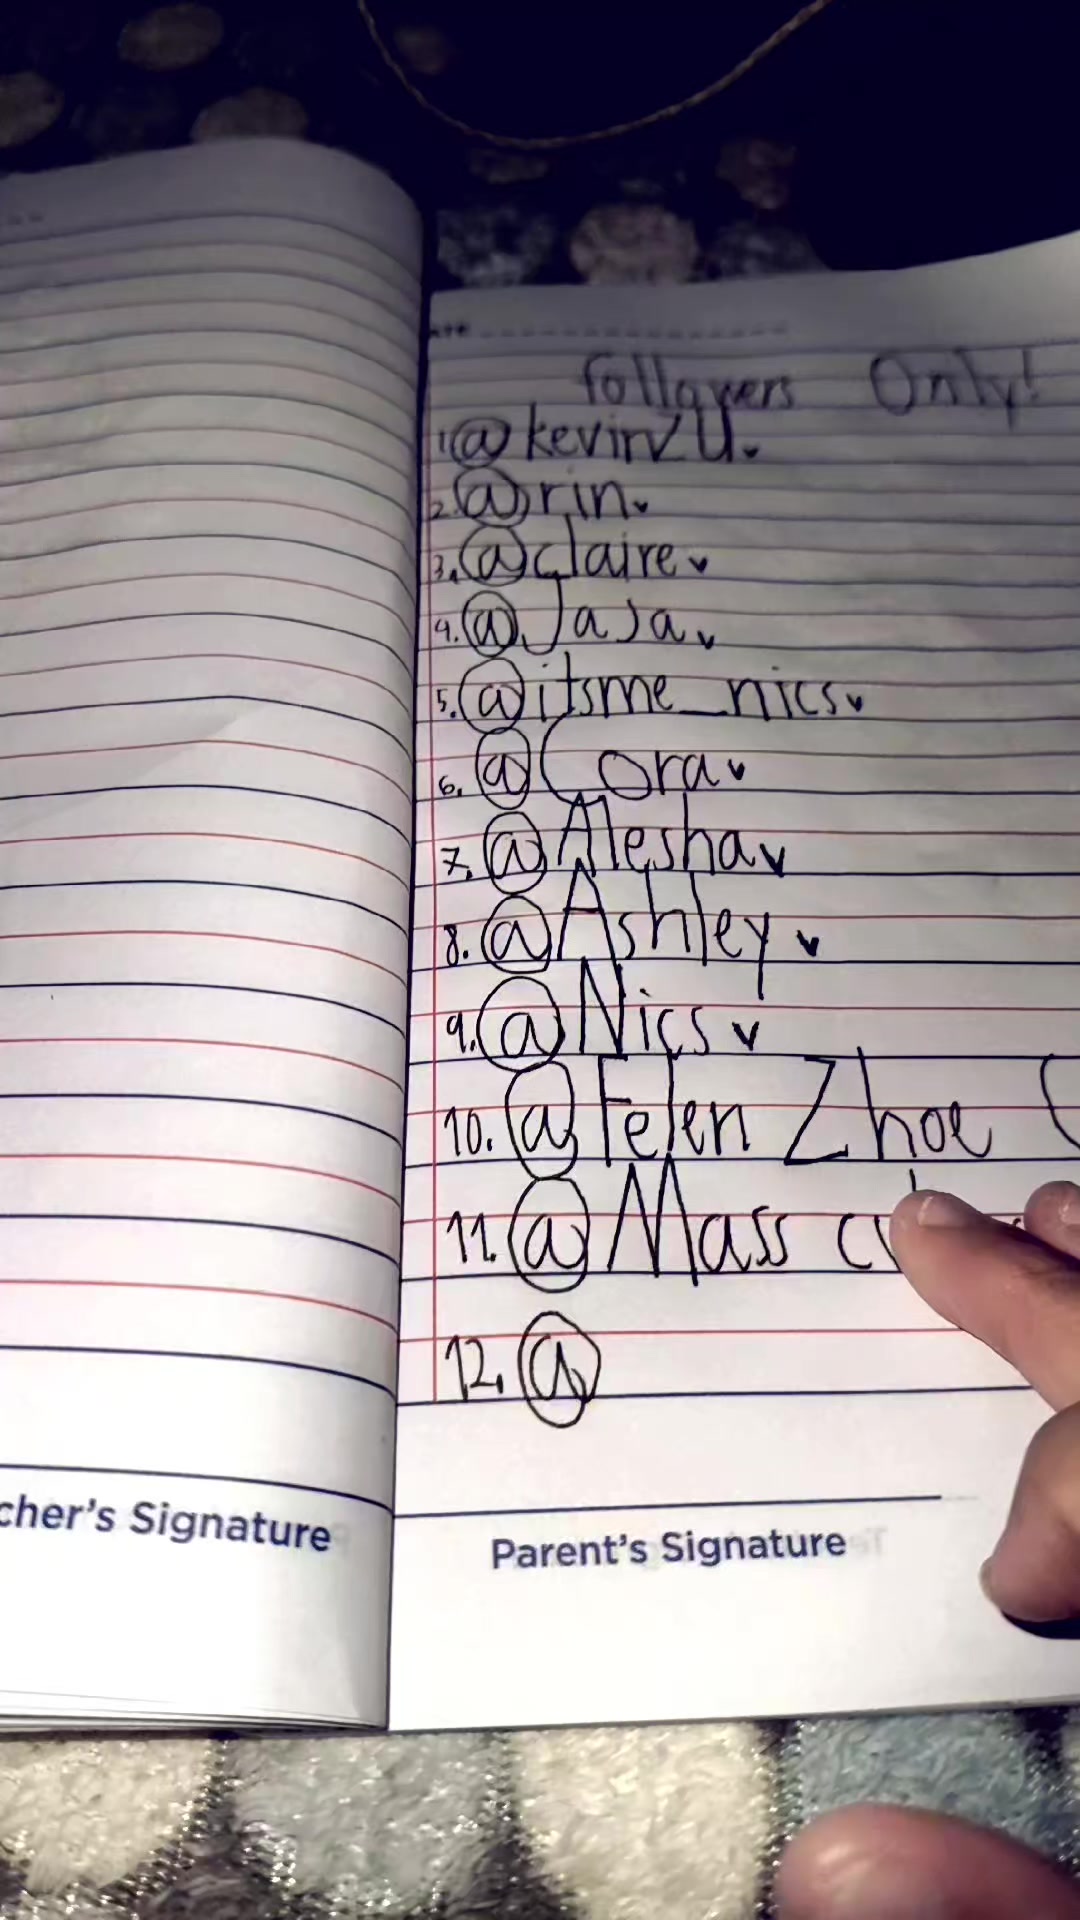 followers Only!
1.@kevinZU.
2.@rin.
3.@claire
4.@JaJa
5.@itsme_nics
6.@Cora
7.@Alesha
8.@Ashley
9.@Nics
10.@Felen Zhoe
11.@Mass
12.@
cher's Signature
Parent's Signature